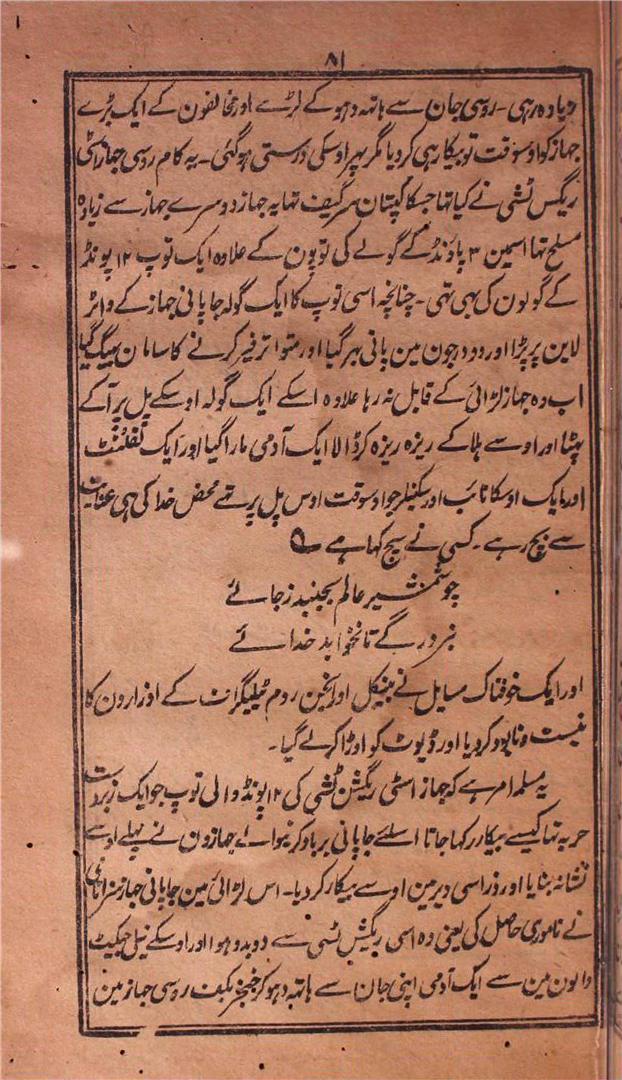 ۸۱
زیادہ رہی ۔ روسی جان سے ہاتھہ دہو کے لڑے اور مخالفون کے ایک بڑے
جہاز کو اوسوقت تو بیکار ہی کر دیا مگر پہر اوسکی درستی ہو گئی ۔ یہ کام روسی جہاز اسٹی
ریگس ٹشی نے کیا تہا جسکا کپتان سرگیف تہا یہ جہاز دوسرے جہاز سے زیادہ
مسلح تہا اسمین ۳ پاونڈ کے گولے کی توپون کے علاوہ ایک توپ ۱۲ پونڈ
کے گولون کی بہی تہی ۔ چنانچہ اسی توپ کا ایک گولہ جاپانی جہاز کے واٹر
لاین پر پڑا اور دو درجون مین پانی بہر گیا اور متواتر فیر کرنے کا سامان بہیگ گیا
اب وہ جہاز لڑائی کے قابل نہ رہا علاوہ اسکے ایک گولہ اوسکے پل پر آکے
پہٹا اور اوسے ہلا کے ریزہ ریزہ کر ڈالا ایک آدمی مارا گیا اور ایک لفٹننٹ
اور ایک اوسکا نائب اور سگنیلر جو اوسوقت اوس پل پر تہے محض خدا کی ہی عنایت
سے بچ رہے ۔ کسی نے سچ کہا ہے ؎
چو شمشیر عالم بجنبد ز جائے
نبرد رگے تا نخواہد خدائے
اور ایک خوفناک مسایل نے بینیکل اور انجین روم ٹیلیگراف کے اوزارون کا
نیست و نابود کر دیا اور ڈیوٹ کو اوڑا کر لے گیا ۔
یہ مسلمہ امر ہے کہ جہاز اسٹی ریگشن ٹشی کی ۱۲ پونڈ والی توپ جو ایک زبردست
حربہ تہا کیسے بیکار رکہا جاتا اسلئے جاپانی برباد کرنیوالے جہازون نے پہلے اوسے
نشانہ بنایا اور ذرا سی دیر مین اوسے بیکار کر دیا ۔ اس لڑائی مین جاپانی جہاز
نے ناموری حاصل کی یعنی وہ اسی ریگش ٹسی سے دوبدو ہوا اور اوسکے نیلی جیکیٹ
والون مین سے ایک آدمی اپنی جان سے ہاتہہ دہو کر خنجر بکف روسی جہاز مین